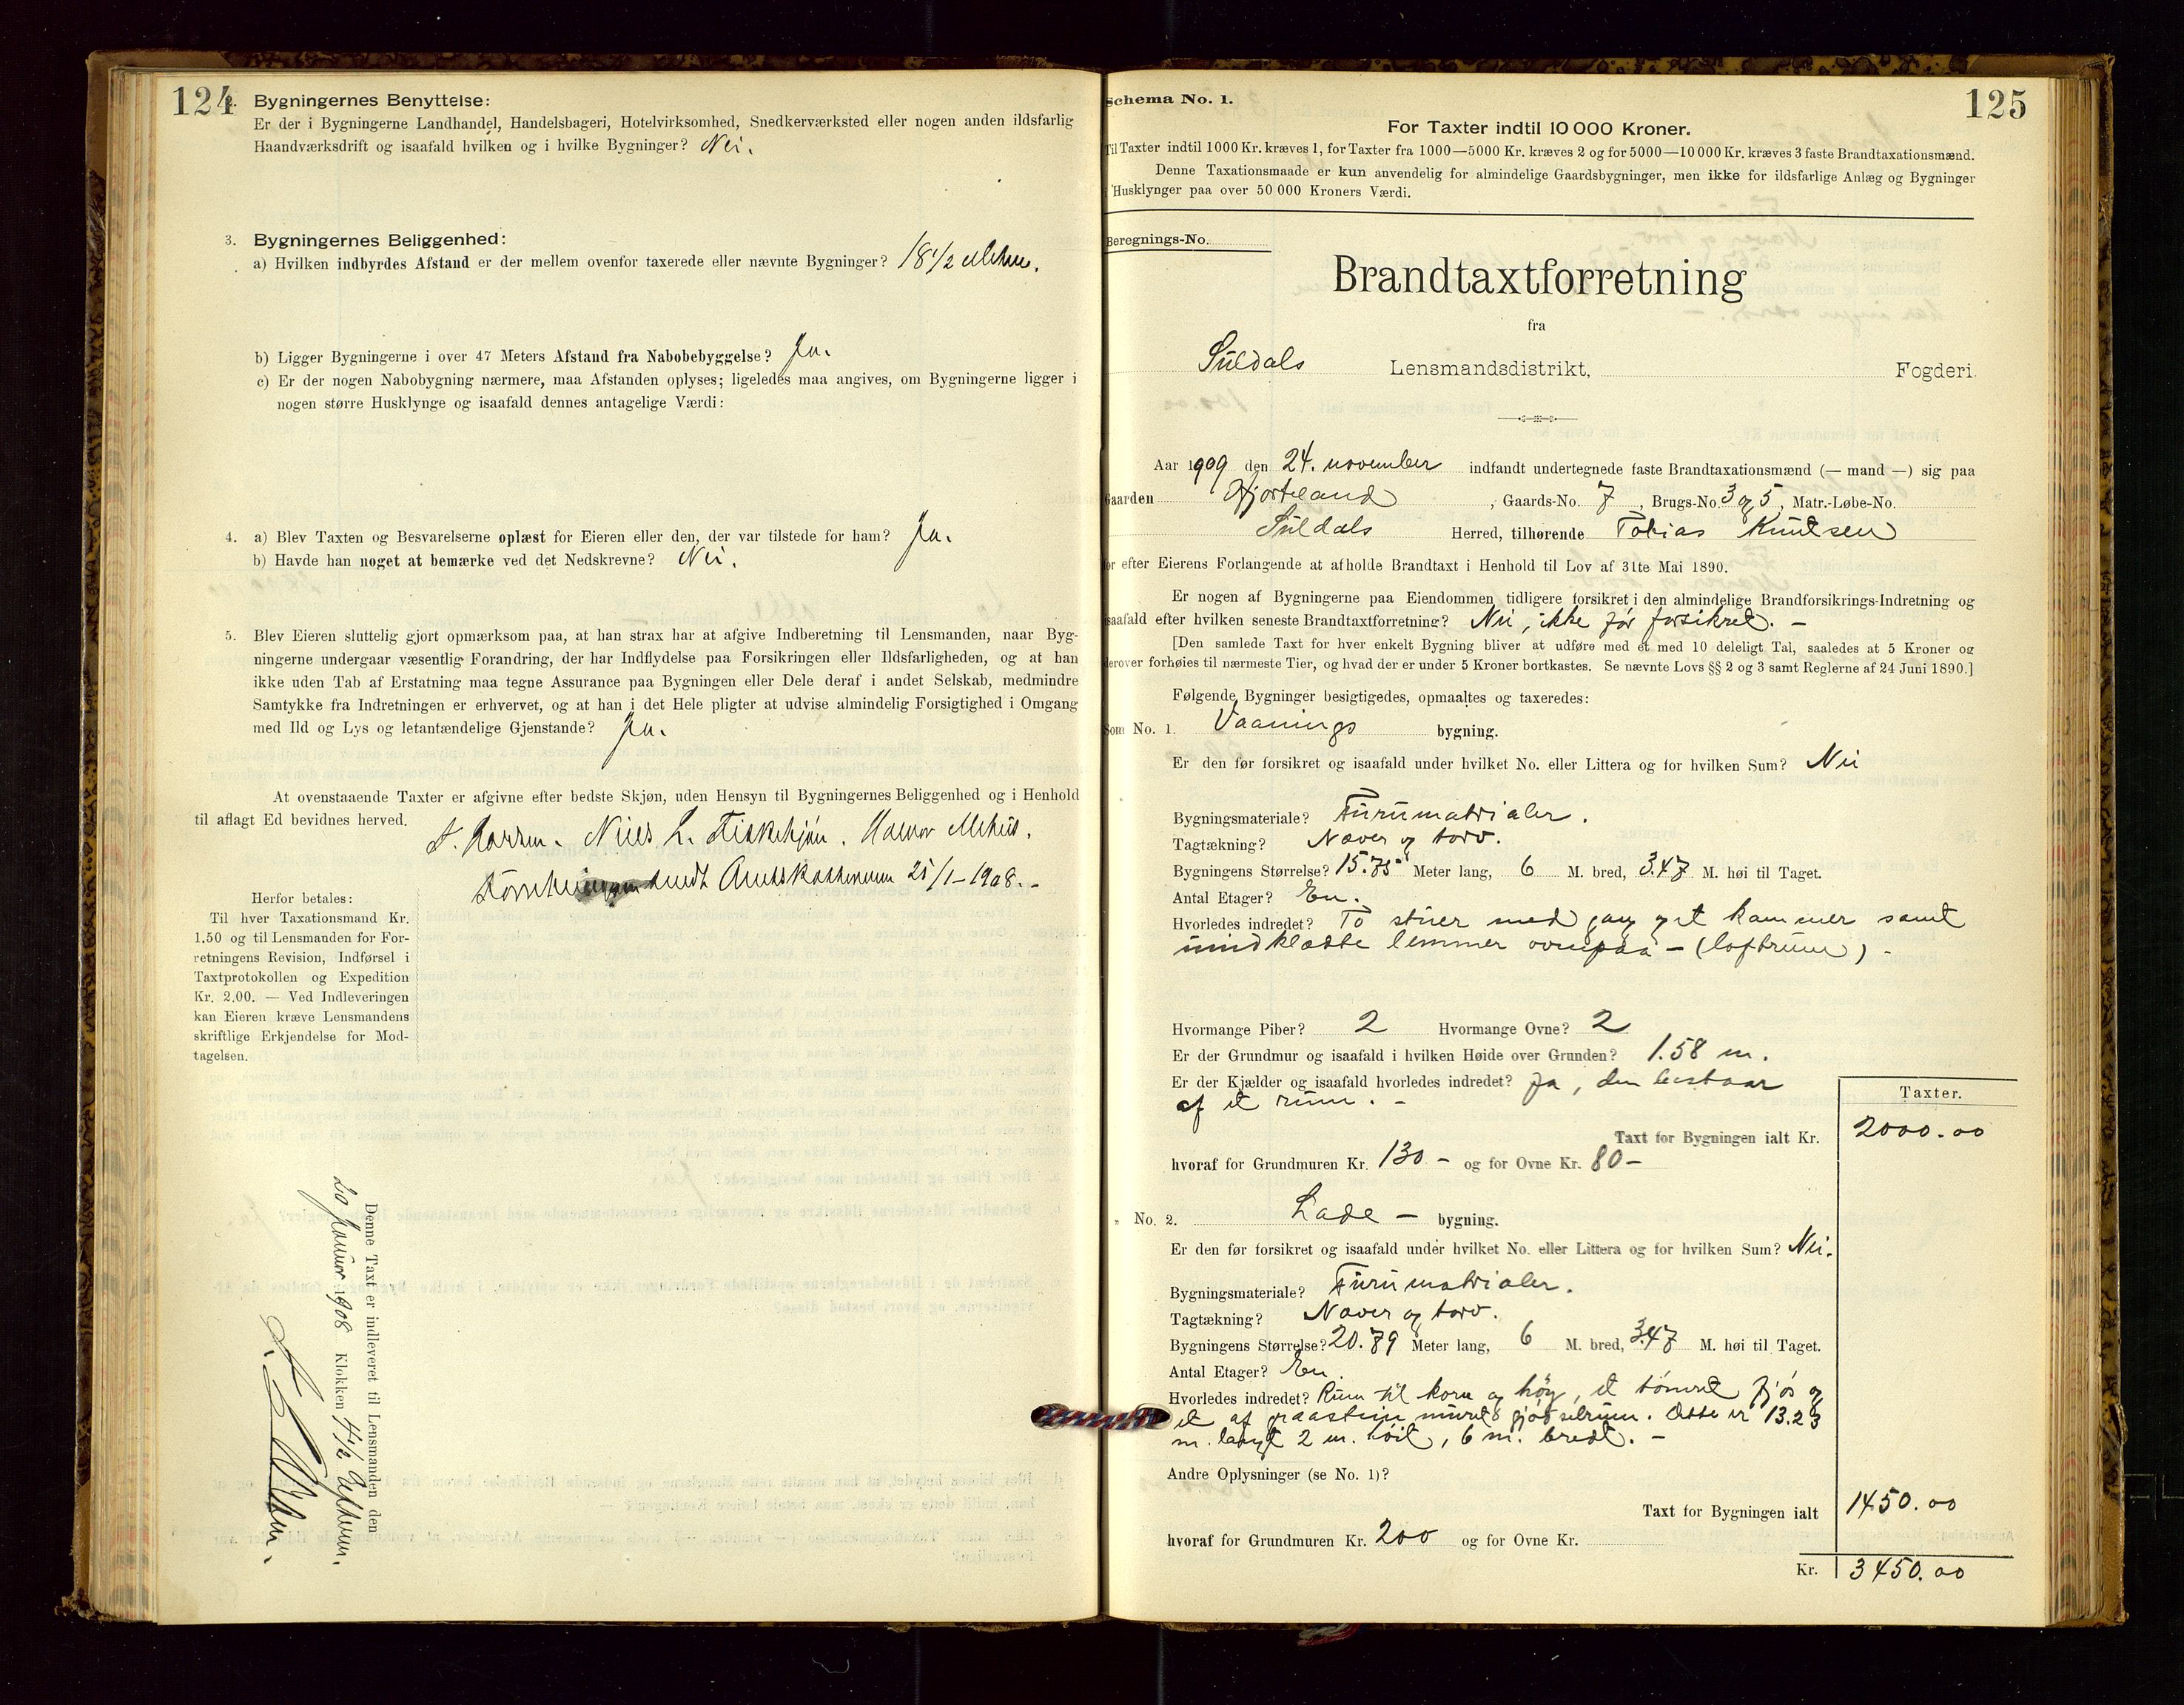 124
2. Bygningernes Benyttelse:
Er der i Bygningerne Landhandel, Handelsbageri, Hotelvirksomhed, Snedkerværksted eller nogen anden ildsfarlig
Haandværksdrift og isaafald hvilken og i hvilke Bygninger? Nei.
3. Bygningernes Beliggenhed:
a) Hvilken indbyrdes Afstand er der mellem ovenfor taxerede eller nævnte Bygninger? 18 1/2 Meter.
b) Ligger Bygningerne i over 47 Meters Afstand fra Nabobebyggelse? Ja.
c) Er der nogen Nabobygning nærmere, maa Afstanden oplyses; ligeledes maa angives, om Bygningerne ligger i
nogen større Husklynge og isaafald dennes antagelige Værdi:
4. a) Blev Taxten og Besvarelserne oplæst for Eieren eller den, der var tilstede for ham? Ja.
b) Havde han noget at bemærke ved det Nedskrevne? Nei.
5. Blev Eieren sluttelig gjort opmærksom paa, at han strax har at afgive Indberetning til Lensmanden, naar Byg-
ningerne undergaar væsentlig Forandring, der har Indflydelse paa Forsikringen eller Ildsfarligheden, og at han
ikke uden Tab af Erstatning maa tegne Assurance paa Bygningen eller Dele deraf i andet Selskab, medmindre
Samtykke fra Indretningen er erhvervet, og at han i det Hele pligter at udvise almindelig Forsigtighed i Omgang
med Ild og Lys og letantændelige Gjenstande? Ja.
At ovenstaaende Taxter er afgivne efter bedste Skjøn, uden Hensyn til Bygningernes Beliggenhed og i Henhold
til aflagt Ed bevidnes herved.
Niels L. Fiskekjön.
sendt Amtskassereren 21/1-1908.-
Herfor betales:
Til hver Taxationsmand Kr.
1.50 og til Lensmanden for For-
retningens Revision, Indførsel i
Taxtprotokollen og Expedition
Kr. 2.00. — Ved Indleveringen
kan Eieren kræve Lensmandens
skriftlige Erkjendelse for Mod-
tagelsen.
Denne Taxt er indleveret til Lensmanden den
20 Januar 1908 Klokken 4 1/2 Efterm.
125
Schema No. 1.
For Taxter indtil 10 000 Kroner.
Til Taxter indtil 1000 Kr. kræves 1, for Taxter fra 1000—5000 Kr. kræves 2 og for 5000—10 000 Kr. kræves 3 faste Brandtaxationsmænd.
Denne Taxationsmaade er kun anvendelig for almindelige Gaardsbygninger, men ikke for ildsfarlige Anlæg og Bygninger
i Husklynger paa over 50 000 Kroners Værdi.
Beregnings-No.
Brandtaxtforretning
fra
Suldals Lensmandsdistrikt, Fogderi.
Aar 1909 den 24. november indfandt undertegnede faste Brandtaxationsmænd (— mand —) sig paa
Gaarden Hjorteland, Gaards-No. 7, Brugs-No. 3 og 5, Matr.-Løbe-No.
Suldals Herred, tilhørende Tobias Knutsen
for efter Eierens Forlangende at afholde Brandtaxt i Henhold til Lov af 31te Mai 1890.
Er nogen af Bygningerne paa Eiendommen tidligere forsikret i den almindelige Brandforsikrings-Indretning og
isaafald efter hvilken seneste Brandtaxtforretning? Nei, ikke før forsikret. -
[Den samlede Taxt for hver enkelt Bygning bliver at udføre med et med 10 deleligt Tal, saaledes at 5 Kroner og
derover forhøies til nærmeste Tier, og hvad der er under 5 Kroner bortkastes. Se nævnte Lovs §§ 2 og 3 samt Reglerne af 24 Juni 1890.]
Følgende Bygninger besigtigedes, opmaaltes og taxeredes:
Som No. 1. Vaanings bygning.
Er den før forsikret og isaafald under hvilket No. eller Littera og for hvilken Sum? Nei
Bygningsmateriale? Furumatrialer.
Tagtækning? Næver og torv.
Bygningens Størrelse? 15.75 Meter lang, 6 M. bred, 3.47 M. høi til Taget.
Antal Etager? En.
Hvorledes indredet? To stuer med gang og et kammer samt
uindklædte lemmer ovenpaa - (loftrum) -
Hvormange Piber? 2 Hvormange Ovne? 2
Er der Grundmur og isaafald i hvilken Høide over Grunden? 1.58 m.
Er der Kjælder og isaafald hvorledes indredet? Ja, den bestaar
af et rum. -
Taxter.
Taxt for Bygningen ialt Kr. 2000.00
hvoraf for Grundmuren Kr. 130 - og for Ovne Kr. 80 -
" No. 2. Lade - bygning.
Er den før forsikret og isaafald under hvilket No. eller Littera og for hvilken Sum? Nei.
Bygningsmateriale? Furumatrialer.
Tagtækning? Næver og torv.
Bygningens Størrelse? 20.79 Meter lang, 6 M. bred, 3.47 M. høi til Taget.
Antal Etager? En.
Hvorledes indredet? Rum til korn og høy, et tømret fjøs og
et af graasten muret gjødselrum. Dette er 13.23
m. langt 2 m. høit, 6 m. bredt. -
Andre Oplysninger (se No. 1)?
Taxt for Bygningen ialt 1450.00
hvoraf for Grundmuren Kr. 200 og for Ovne Kr.
Kr. 3450.00